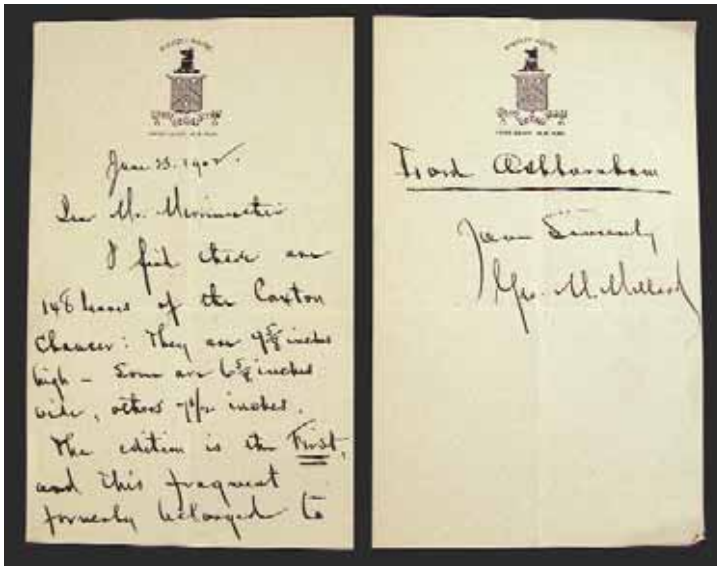 June 23. 1902.
Dear Mr.
I find there are
148 leaves of the Caxton
Chaucer: They are 9⅝ inches
high – Some are 6⅝ inches
wide, others 7½ inches.
The edition is the First,
and this fragment
formerly belonged to
Lord Ashburnham
Yours Sincerely
Geo. M. Millard